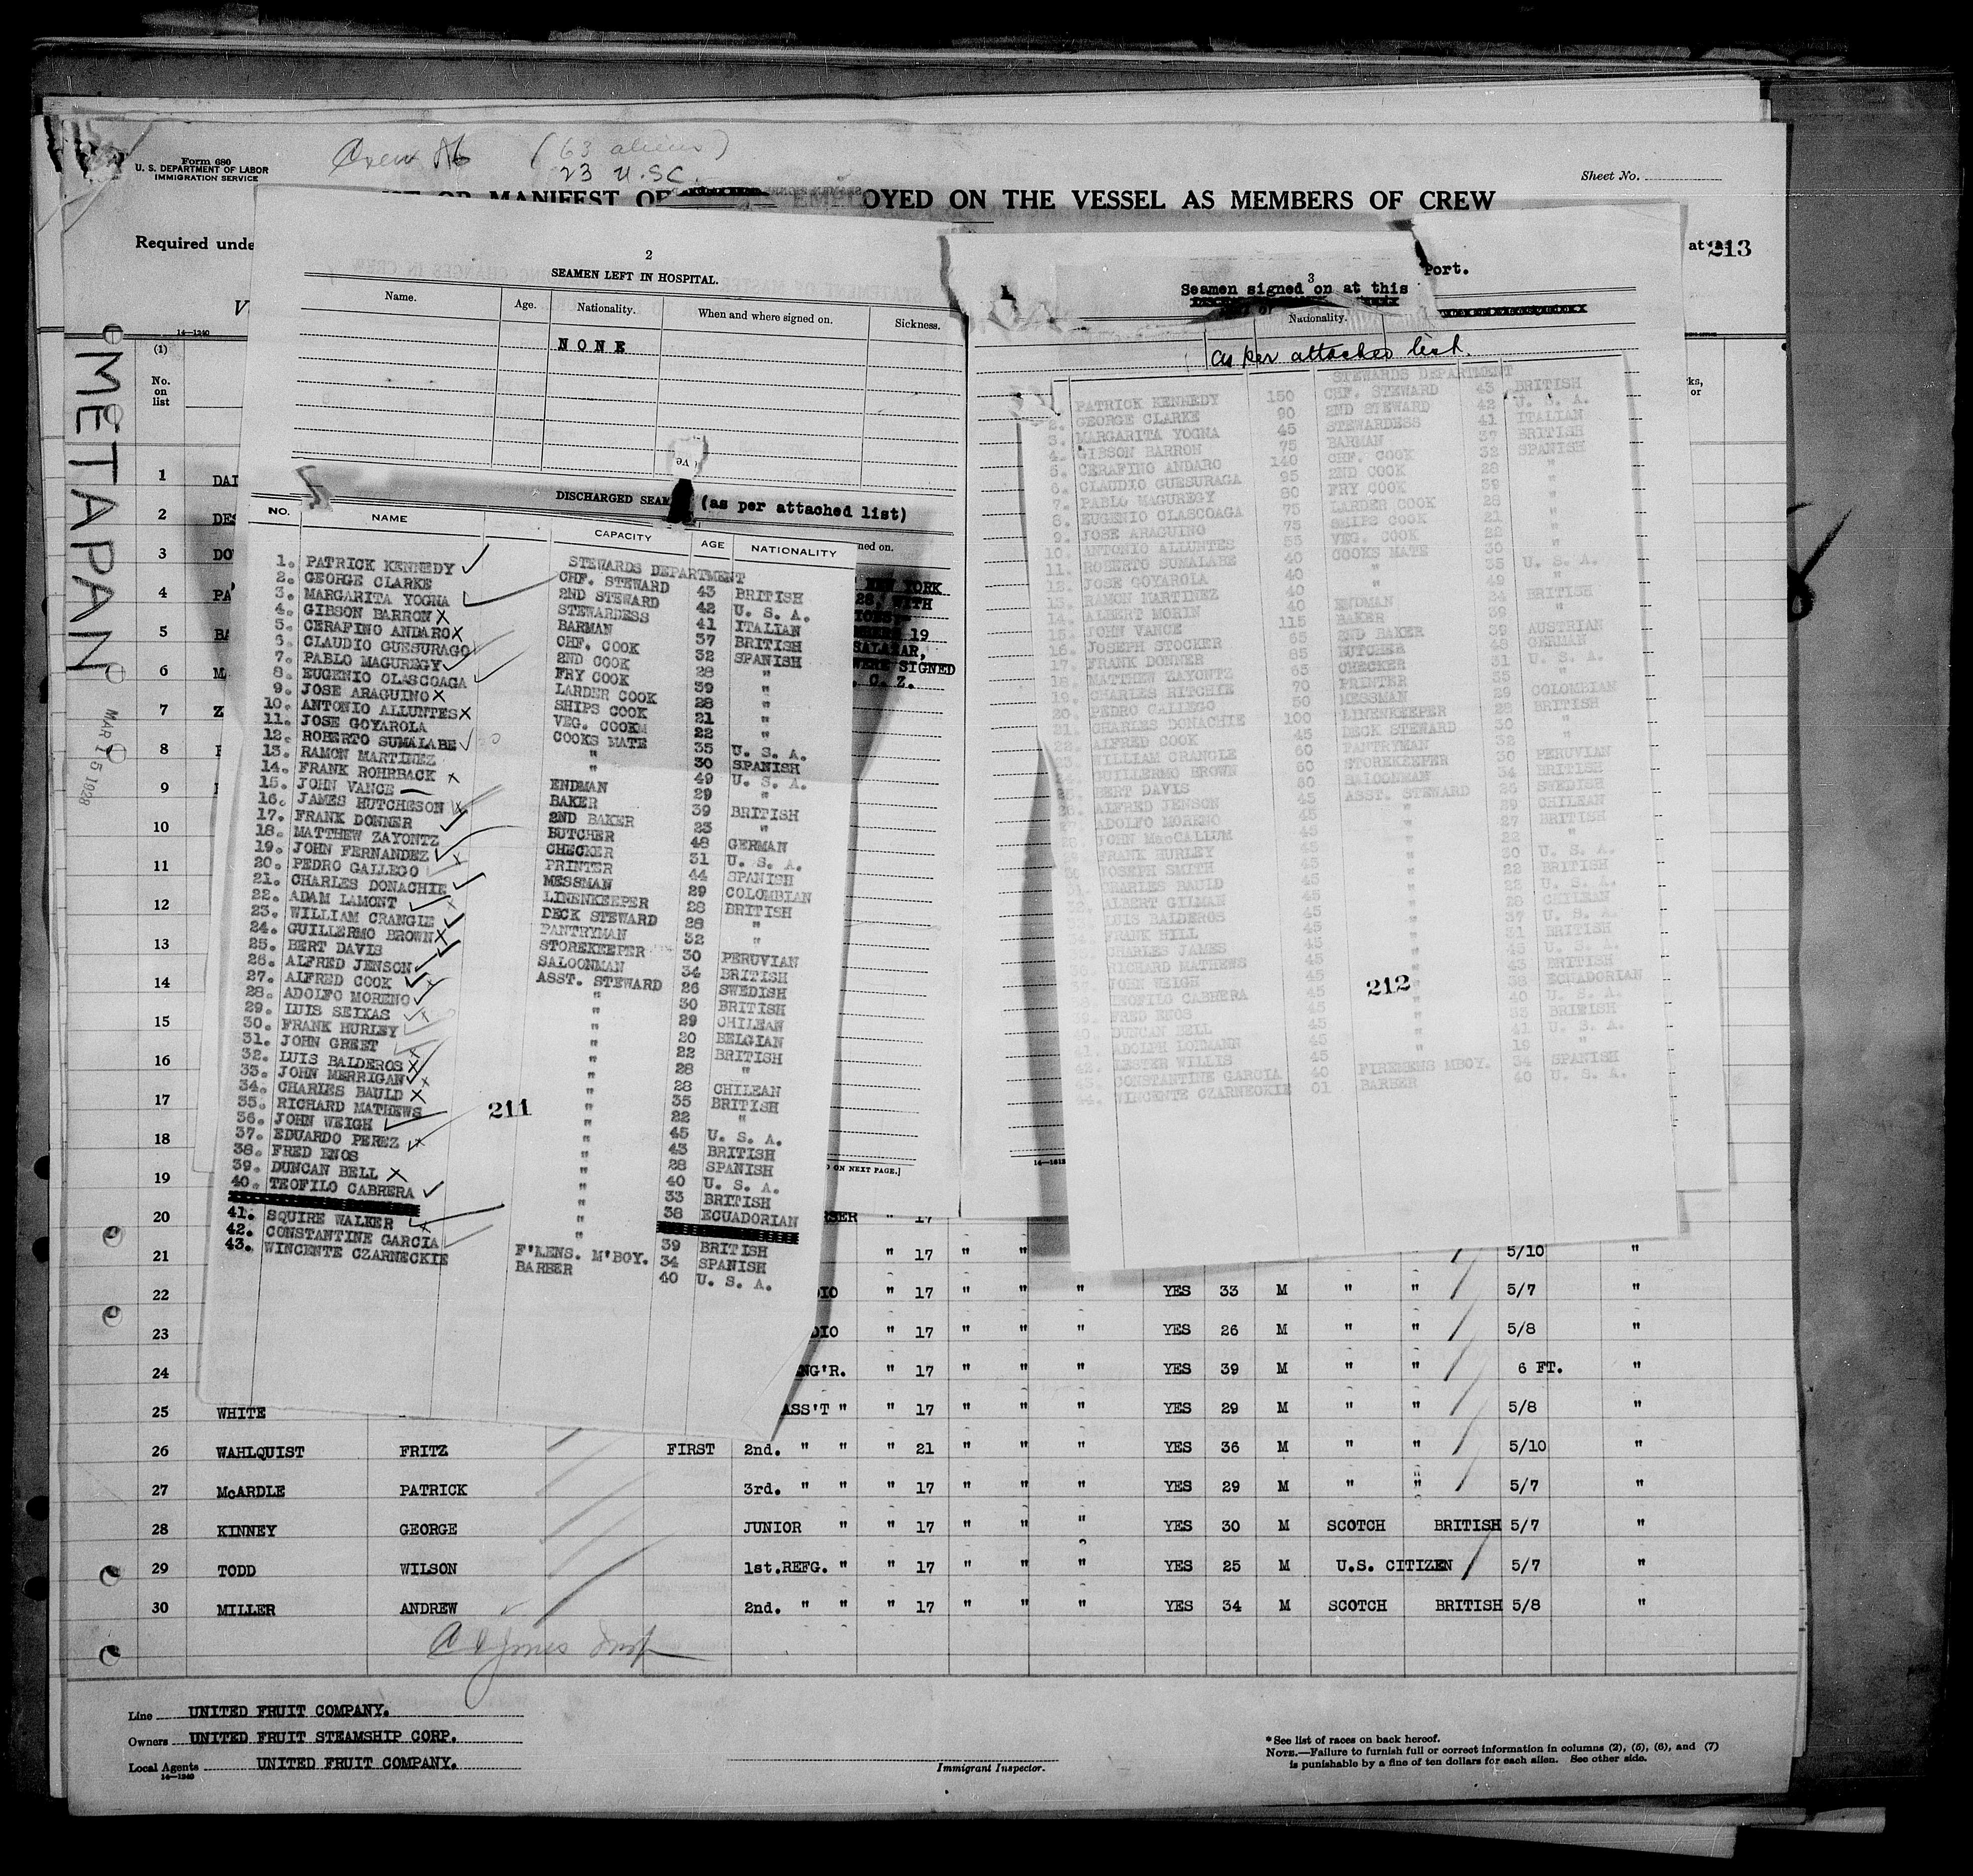 Form 680
U. S. DEPARTMENT OF LABOR
IMMIGRATION SERVICE
Crew 86 (63 aliens)
23 U.S.C.
Sheet No.
OR MANIFEST OF EMPLOYED ON THE VESSEL AS MEMBERS OF CREW
Required unde
at
213
METAPAN
MAR 15 1928
14-1240
(1)
No. on list
2
SEAMEN LEFT IN HOSPITAL.
Name. Age. Nationality. When and where signed on. Sickness.
NONE
DISCHARGED SEAM (as per attached list)
NO. NAME CAPACITY AGE NATIONALITY
STEWARDS DEPARTMENT
1. PATRICK KENNEDY CHF. STEWARD 43 BRITISH
2. GEORGE CLARKE 2ND STEWARD 42 U. S. A.
3. MARGARITA YOGNA STEWARDESS 41 ITALIAN
4. GIBSON BARRON BARMAN 37 BRITISH
5. CERAFINO ANDARO CHF. COOK 32 SPANISH
6. CLAUDIO GUESURAGO 2ND COOK 28 "
7. PABLO MAGUREGY FRY COOK 39 "
8. EUGENIO OLASCOAGA LARDER COOK 28 "
9. JOSE ARAGUINO SHIPS COOK 21 "
10. ANTONIO ALLUNTES VEG. COOK 22 "
11. JOSE GOYAROLA COOKS MATE 35 U. S. A.
12. ROBERTO SUMALABE " 30 SPANISH
13. RAMON MARTINEZ 49 U. S. A.
14. FRANK ROHRBACK ENDMAN 29 "
15. JOHN VANCE BAKER 39 BRITISH
16. JAMES HUTCHESON 2ND BAKER 23 "
17. FRANK DONNER BUTCHER 48 GERMAN
18. MATTHEW ZAYONTZ CHECKER 31 U. S. A.
19. JOHN FERNANDEZ PRINTER 44 SPANISH
20. PEDRO GALLEGO MESSMAN 29 COLOMBIAN
21. CHARLES DONACHIE LINENKEEPER 28 BRITISH
22. ADAM LAMONT DECK STEWARD 28 "
23. WILLIAM CRANGLE PANTRYMAN 32 "
24. GUILLERMO BROWN STOREKEEPER 30 PERUVIAN
25. BERT DAVIS SALOONMAN 34 BRITISH
26. ALFRED JENSON ASST. STEWARD 26 SWEDISH
27. ALFRED COOK " 30 BRITISH
28. ADOLFO MORENO " 29 CHILEAN
29. LUIS SEIXAS " 20 BELGIAN
30. FRANK HURLEY " 22 BRITISH
31. JOHN GREET " 28 "
32. LUIS BALDEROS " 28 CHILEAN
33. JOHN MERRIGAN " 35 BRITISH
34. CHARLES BAULD " 22 "
35. RICHARD MATHEWS " 45 U. S. A.
36. JOHN WEIGH " 43 BRITISH
37. EDUARDO PEREZ " 28 SPANISH
38. FRED ENOS " 40 U. S. A.
39. DUNCAN BELL " 33 BRITISH
40. TEOFILO CABRERA " 38 ECUADORIAN
41. SQUIRE WALKER " 39 BRITISH
42. CONSTANTINE GARCIA F'MENS. M'BOY. 34 SPANISH
43. WINCENTE CZARNECKIE BARBER 40 U. S. A.
211
ned on.
NEW YORK
WITH
19
SALAZAR,
WERE SIGNED
, C. Z.
ON NEXT PAGE.]
3
Seamen signed on at this Port.
Nationality.
as per attached list.
STEWARDS DEPARTMENT
PATRICK KENNEDY 150 CHF. STEWARD 43 BRITISH
2. GEORGE CLARKE 90 2ND STEWARD 42 U. S. A.
3. MARGARITA YOGNA 45 STEWARDESS 41 ITALIAN
4. GIBSON BARRON 75 BARMAN 37 BRITISH
5. CERAFINO ANDARO 140 CHF. COOK 32 SPANISH
6. CLAUDIO GUESURAGA 95 2ND COOK 28 "
7. PABLO MAGUREGY 80 FRY COOK 39 "
8. EUGENIO OLASCOAGA 75 LARDER COOK 28 "
9. JOSE ARAGUINO 75 SHIPS COOK 21 "
10. ANTONIO ALLUNTES 55 VEG. COOK 22 "
11. ROBERTO SUMALABE 40 COOKS MATE 30 "
12. JOSE GOYAROLA 40 " 35 U. S. A.
13. RAMON MARTINEZ 40 " 49 "
14. ALBERT MORIN 40 ENDMAN 24 BRITISH
15. JOHN VANCE 115 BAKER 39 "
16. JOSEPH STOCKER 65 2ND BAKER 39 AUSTRIAN
17. FRANK DONNER 85 BUTCHER 48 GERMAN
18. MATTHEW ZAYONTZ 65 CHECKER 31 U. S. A.
19. CHARLES RITCHIE 70 PRINTER 55 "
20. PEDRO GALLEGO 50 MESSMAN 29 COLOMBIAN
21. CHARLES DONACHIE 100 LINENKEEPER 28 BRITISH
22. ALFRED COOK 45 DECK STEWARD 30 "
23. WILLIAM CRANGLE 60 PANTRYMAN 32 "
GUILLERMO BROWN 60 STOREKEEPER 30 PERUVIAN
25. BERT DAVIS 60 SALOONMAN 34 BRITISH
26. ALFRED JENSON 45 ASST. STEWARD 26 SWEDISH
ADOLFO MORENO 45 " 29 CHILEAN
JOHN MacCALLUM 45 " 27 BRITISH
FRANK HURLEY 45 " 22 "
JOSEPH SMITH 45 " 30 U. S. A.
31. CHARLES BAULD 45 " 22 BRITISH
ALBERT GILMAN 45 " 22 U. S. A.
LUIS BALDEROS 45 " 28 CHILEAN
FRANK HILL 45 " 37 U. S. A.
CHARLES JAMES 45 " 31 BRITISH
RICHARD MATHEWS 45 " 45 U. S. A.
JOHN WEIGH 45 " 43 BRITISH
TEOFILO CABRERA 45 " 38 ECUADORIAN
FRED ENOS 45 " 40 U. S. A.
DUNCAN BELL 45 " 33 BRITISH
41. ADOLPH LOHMANN 45 " 41 U. S. A.
42. LESTER WILLIS 45 " 19 "
CONSTANTINE GARCIA 40 FIREMENS MBOY. 34 SPANISH
44. WINCENTE CZARNECKIE 01 BARBER 40 U. S. A.
212
1 DAI
2 DES
3 DO
4 PA
5 BA
6 M
7 Z
8
9
10
11
12
13
14
15
16
17
18
19
20 17
21 " 17 " " 5/10 "
22 DIO " 17 " " " YES 33 M " " 5/7 "
23 DIO " 17 " " " YES 26 M " " 5/8 "
24 NG'R. " 17 " " " YES 39 M " " 6 FT. "
25 WHITE ASS'T " " 17 " " " YES 29 M " " 5/8 "
26 WAHLQUIST FRITZ FIRST 2nd. " " " 21 " " " YES 36 M " " 5/10 "
27 McARDLE PATRICK 3rd. " " " 17 " " " YES 29 M " " 5/7 "
28 KINNEY GEORGE JUNIOR " " 17 " " " YES 30 M SCOTCH BRITISH 5/7 "
29 TODD WILSON 1st.REFG. " " 17 " " " YES 25 M U.S. CITIZEN 5/7 "
30 MILLER ANDREW 2nd. " " " 17 " " " YES 34 M SCOTCH BRITISH 5/8 "
Line UNITED FRUIT COMPANY.
Owners UNITED FRUIT STEAMSHIP CORP.
Local Agents UNITED FRUIT COMPANY.
14-1240
Immigrant Inspector.
* See list of races on back hereof.
NOTE.—Failure to furnish full or correct information in columns (2), (5), (6), and (7)
is punishable by a fine of ten dollars for each alien. See other side.